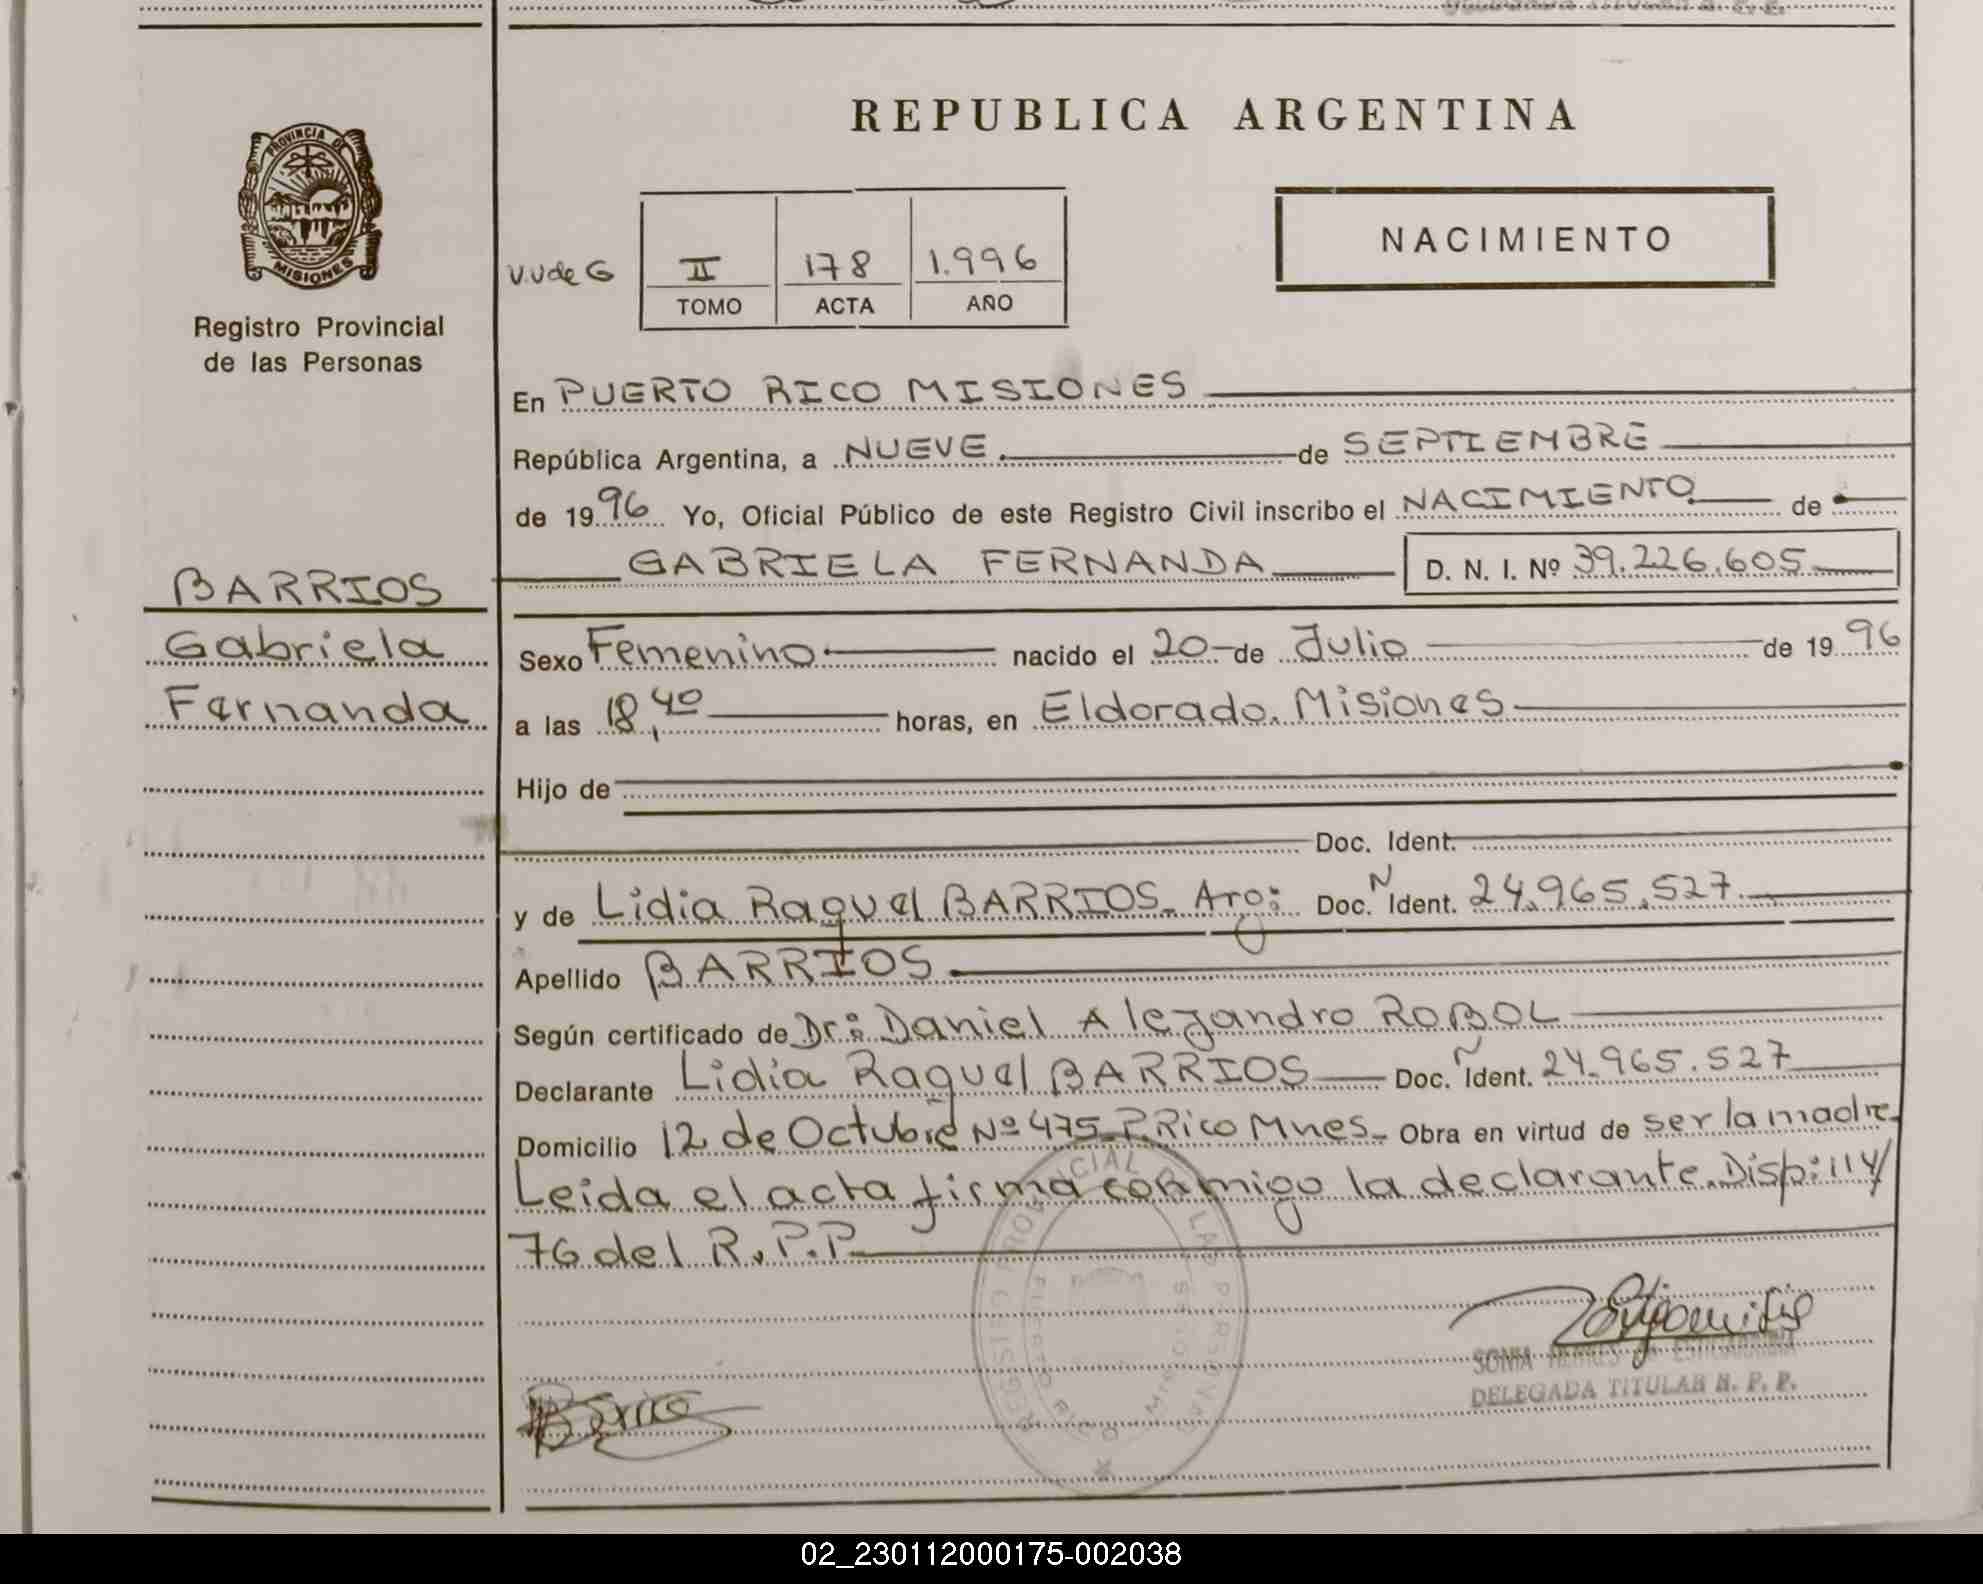 REPUBLICA ARGENTINA
PROVINCIA DE
MISIONES
Registro Provincial
de las Personas
V.V de G
II 178 1.996
TOMO ACTA AÑO
NACIMIENTO
En PUERTO RICO MISIONES
República Argentina, a NUEVE. de SEPTIEMBRE
de 1996 Yo, Oficial Público de este Registro Civil inscribo el NACIMIENTO de
GABRIELA FERNANDA D. N. I. Nº 39.226.605
BARRIOS
Gabriela
Fernanda
Sexo Femenino nacido el 20 de Julio de 1996
a las 18,40 horas, en Eldorado. Misiones
Hijo de
Doc. Ident.
y de Lidia Raquel BARRIOS. Arg: Doc. N Ident. 24.965.527
Apellido BARRIOS
Según certificado de Dr: Daniel Alejandro ROBOL
Declarante Lidia Raquel BARRIOS Doc. N Ident. 24.965.527
Domicilio 12 de Octubre Nº 475 P. Rico Mnes. Obra en virtud de ser la madre.
Leida el acta firma conmigo la declarante. Disp: 114/
76 del R.P.P.
REGISTRO PROVINCIAL DE LAS PERSONAS
SONIA
DELEGADA TITULAR R. P. P.
02_230112000175-002038